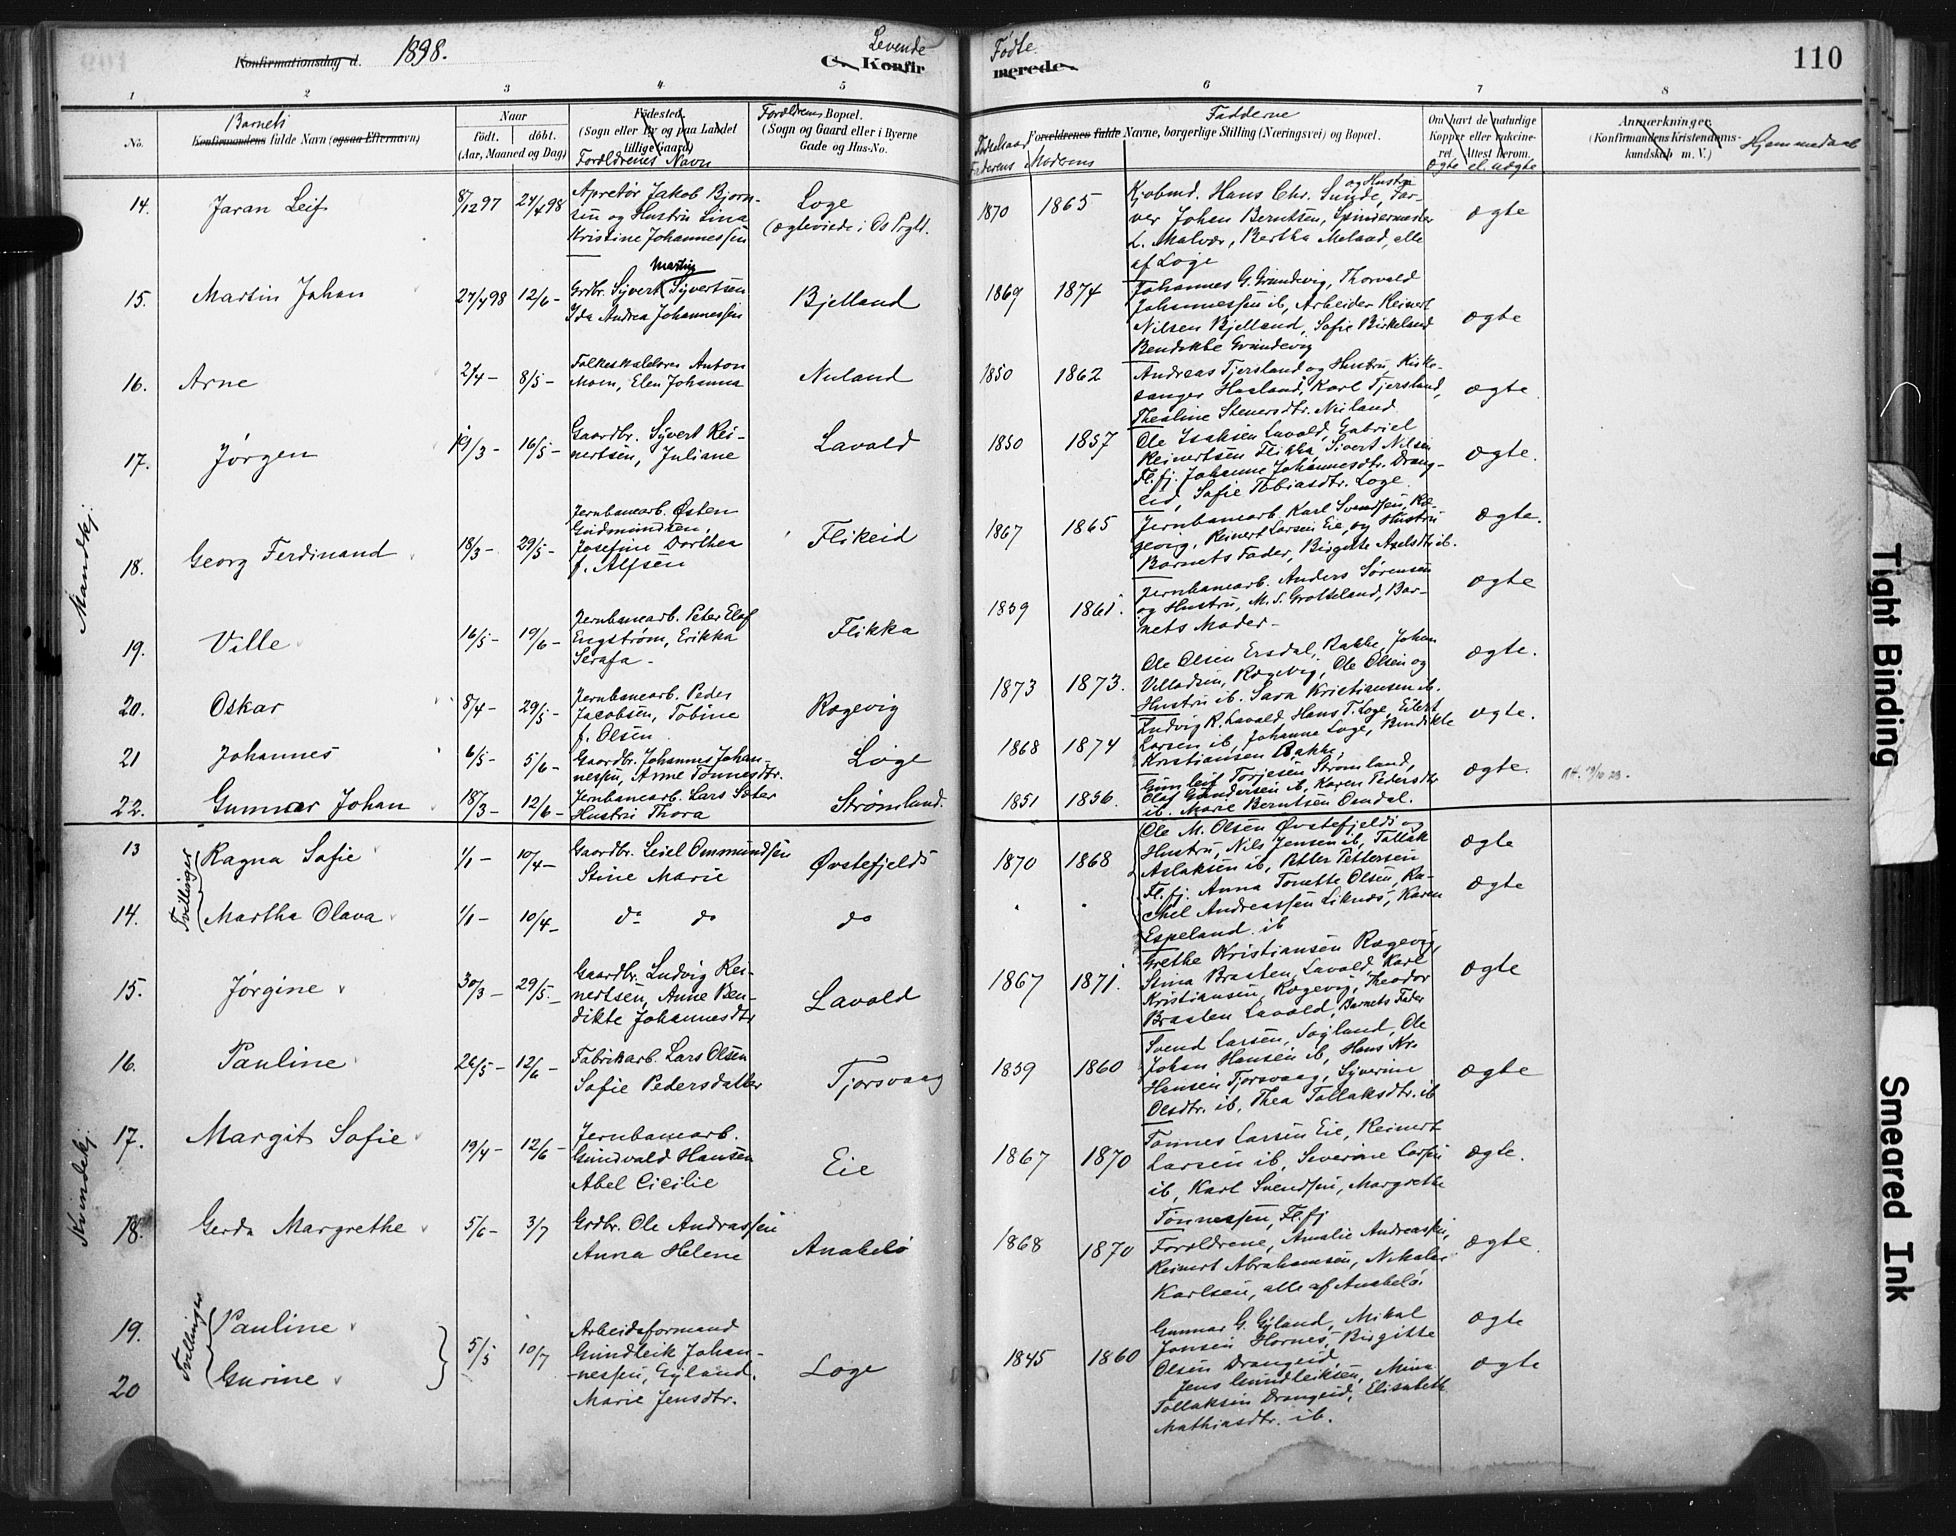 Konfirmationsdag d. 1898.
Levende
C. Konfir
Fødte
merede
110
1 2 3 4 5 6 7 8
No.
Barnets
Konfirmandens fulde Navn (ogsaa Efternavn)
Naar
født. døbt.
(Aar, Maaned og Dag)
Fødested.
(Sogn eller By og paa Landet
tillige Gaard)
Forældrenes Navn
Forældrenes Bopæl.
(Sogn og Gaard eller i Byerne
Gade og Hus-No.
Fødselsaar
Faderens Moderens
Fadderne
Forældrenes fulde Navne, borgerlige Stilling (Næringsvei) og Bopæl.
Om havt de naturlige
Kopper eller vakcine-
ret. Attest herom.
Ægte el. uægte
Anmærkninger
(Konfirmandens Kristendoms-
kundskab m. V.)
Hjemmedaab
Mandkj.
14. Jaran Leif 8/12 97 24/4 98
Apretør Jakob Bjorn-
sen og Hustru Lina
Kristine Johannessen
Loge
(ægteviede i Os Prgld.
1870 1865
Kjøbmd. Hans Chr. Sunde, og Hustru Far-
ver Johan Berntsen, Spindermester
L. Malvær, Bertha Meland, alle
af Loge
ægte
15. Martin Johan 24/4 98 12/6 -
Grdbr. Syvert Martin Syvertsen
Ida Andrea Johannessen
Bjelland
1869 1874
Johannes G. Grundevig, Thorvald
Johannessen ib, Arbeider Reinert
Nilsen Bjelland, Sofie Birkeland
Bendikte Grundevig
ægte
16. Arne 2/4 - 8/5 -
Folkeskolelærer Anton
Moen, Elen Johanna
Nuland
1850 1862
Andreas Tjersland og Hustru, Kirke-
sanger Haaland, Karl Tjersland,
Thealine Stenersdtr. Nuland
ægte
17. Jørgen 19/3 - 16/5 -
Gaardbr. Syvert Rei-
nertsen, Juliane
Lavold
1850 1857
Ole Isaksen Lavold, Gabriel
Reinertsen Flikka, Sivert Nilsen
Fl.fj. Johanne Johannesdtr. Drang-
eid, Sofie Tobiasdtr. Loge
ægte.
18. Georg Ferdinand 18/3 - 29/5 -
Jernbanearb. Østen
Gudmundsen,
Josefine Dorthea
f. Alfsen
Flikeid
1867 1865
Jernbanearb. Karl Svendsen, Ræ-
gevig, Reinert Larsen Eie, og Hustru
Barnets Fader, Birgitte Axelsdtr ib.
ægte.
19. Ville 16/5 - 19/6 -
Jernbanearb. Peter Elof
Engstrøm, Erikka
Serafa -
Flikka
1859 1861.
Jernbanearb. Anders Sørensen
og Hustru, M. S. Grotteland, Bar-
nets Moder -
ægte
20. Oskar 8/4 - 29/5 -
Jernbanearb. Peder
Jacobsen, Tobine
f. Olsen
Rægevig
1873 1873.
Ole Olsen Ersdal, Bakke, Johan
Villadsen, Rægevig, Ole Olsen og
Hustru ib. Sara Kristiansen ib.
ægte.
21 Johannes 6/5 - 5/6 -
Gaardbr. Johannes Johan-
nessen, Anne Tønnesdtr.
Loge
1868 1874
Ludvig R. Lavold, Hans T. Loge, Eilert
Larsen ib, Johanna Loge, Bendikte
Kristiansen Bakke,
ægte.
22. Gunnar Johan 18/3 - 12/6 -
Jernbanearb. Lars Sæter
Hustru Thora
Strømland.
1851 1856.
Gunleif Torjesen Strømland,
Olaf Gundersen ib, Karen Pedersdtr
ib. Marie Berntsen Omdal.
ægte.
Kvindekj.
Tvillinger
13 Ragna Sofie 1/1 - 10/4 -
Gaardbr. Leiel Ommundsen
Stine Marie
Øvstefjelds
1870 1868
Ole M. Olsen Øvstefjelds og
Hustru, Nils Jensen ib, Tallak
Aslaksen ib, Petter Pettersen
Fl.fj. Anna Tonette Olsen, Ra-
chel Andreassen Liknes, Karen
Espeland ib
ægte
14. Martha Olava 1/1 - 10/4 -
do do
do
ægte
15. Jørgine 30/3 - 29/5 -
Gaardbr. Ludvig Rei-
nertsen, Anne Ben-
dikte Johannesdtr
Lavold
1867 1871.
Grethe Kristiansen Rægevig
Stina Braaten, Lavold, Karl
Kristiansen, Rægevig, Theodor
Braaten Lavold, Barnets Fader
ægte
16. Pauline 26/5 - 12/6 -
Fabrikarb. Lars Olsen
Sofie Pedersdatter
Tjorsvaag
1859 1860
Svend Larsen, Søyland, Ole
Johan Hansen ib, Hans Kr.
Hansen Tjorsvaag, Syverine
Olsdtr. ib, Thea Tallaksdtr. ib
ægte
17. Margit Sofie 19/4 - 12/6 -
Jernbanearb.
Gundvald Hansen
Abel Cicilie
Eie
1867 1870
Tønnes Larsen Eie, Reinert
Larsen ib, Severine Larsen
ib, Karl Svendsen, Margrethe
Tønnessen, Fl.fj
ægte.
18. Gerda Margrethe 5/6 - 3/7
Grdbr. Ole Andreassen
Anna Helene
Anabelø
1868 1870
Forældrene, Amalie Andreassen,
Reinert Abrahamsen, Nikolai
Karlsen, alle af Anabelø.
ægte
Tvillinger
19. Pauline
20 Gurine
5/5 10/7
Arbeidsformand
Gundleik Johan-
nessen, Gyland,
Marie Jensdtr.
Loge
1845 1860
Gunnar G. Gyland, Mikal
Jonsen Hornes, Birgitte
Olsen Drangeid,
Jens Gundleiksen, Mina
Tallaksen Drangeid, Elisabeth
Mathiasdtr. ib.
ægte
ægte
Tight Binding
Smeared Ink